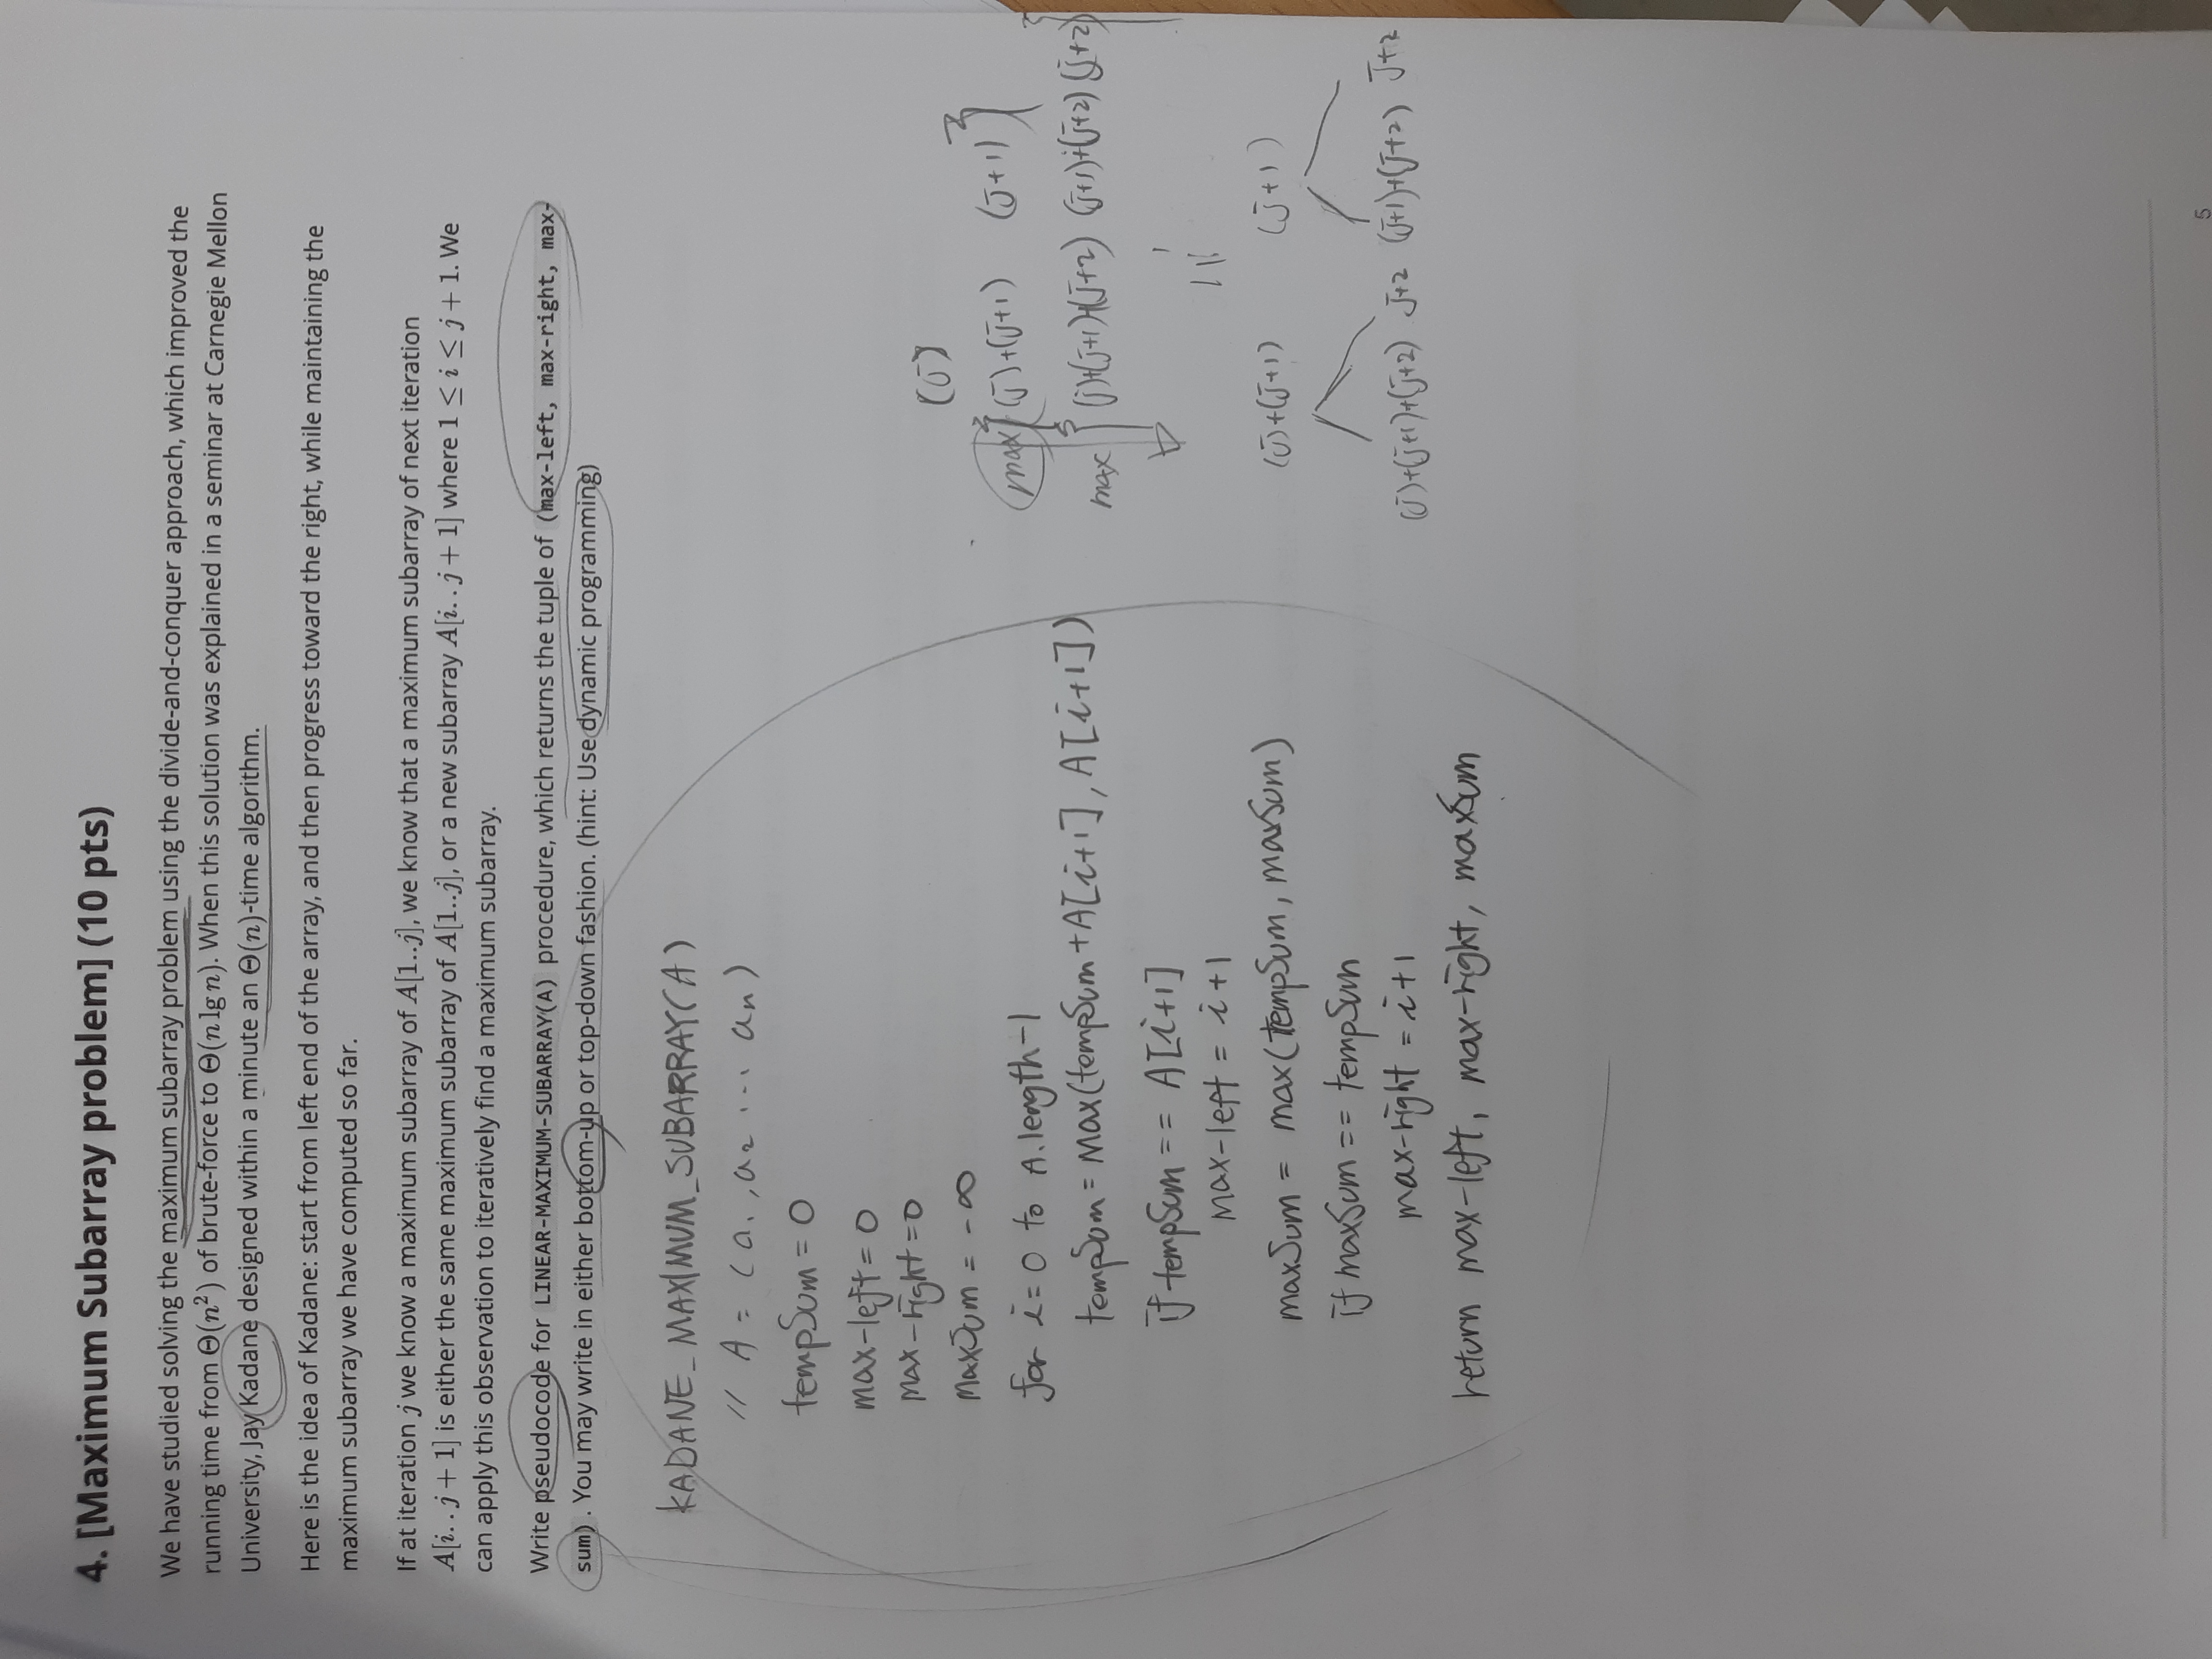 4. [Maximum Subarray problem] (10 pts)
We have studied solving the maximum subarray problem using the divide-and-conquer approach, which improved the
running time from Θ(n²) of brute-force to Θ(n lg n). When this solution was explained in a seminar at Carnegie Mellon
University, Jay Kadane designed within a minute an Θ(n)-time algorithm.
Here is the idea of Kadane: start from left end of the array, and then progress toward the right, while maintaining the
maximum subarray we have computed so far.
If at iteration j we know a maximum subarray of A[1..j], we know that a maximum subarray of next iteration
A[i. . j + 1] is either the same maximum subarray of A[1..j], or a new subarray A[i. . j + 1] where 1 ≤ i ≤ j + 1. We
can apply this observation to iteratively find a maximum subarray.
Write pseudocode for LINEAR-MAXIMUM-SUBARRAY(A) procedure, which returns the tuple of (max-left, max-right, max-
sum) . You may write in either bottom-up or top-down fashion. (hint: Use dynamic programming)
KADANE_MAXIMUM_SUBARRAY(A)
// A = (a1, a2 ... an)
tempSum = 0
max-left = 0
max-right = 0
maxSum = -∞
for i = 0 to A.length-1
tempSum = Max(tempSum + A[i+1], A[i+1])
if tempSum == A[i+1]
max-left = i+1
maxSum = max(tempSum, maxSum)
if maxSum == tempSum
max-right = i+1
return max-left, max-right, maxSum
(j)
max{ (j)+(j+1) (j+1) }
max { (j)+(j+1)+(j+2) (j+1)+(j+2) (j+2) }
(j)+(j+1) (j+1)
(j)+(j+1)+(j+2) j+2 (j+1)+(j+2) j+2
5